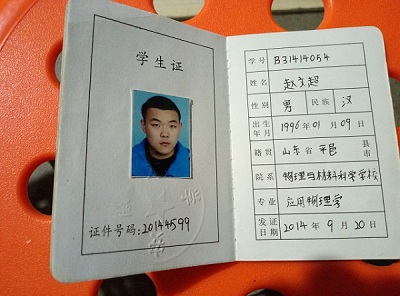 学生证
证件号码:20144599
学号 B31414054
姓名 赵文超
性别 男 民族 汉
出生年月 1996年01月09日
籍贯 山东省平邑县市
院系 物理与材料科学学校
专业 应用物理学
发证日期 2014年9月20日